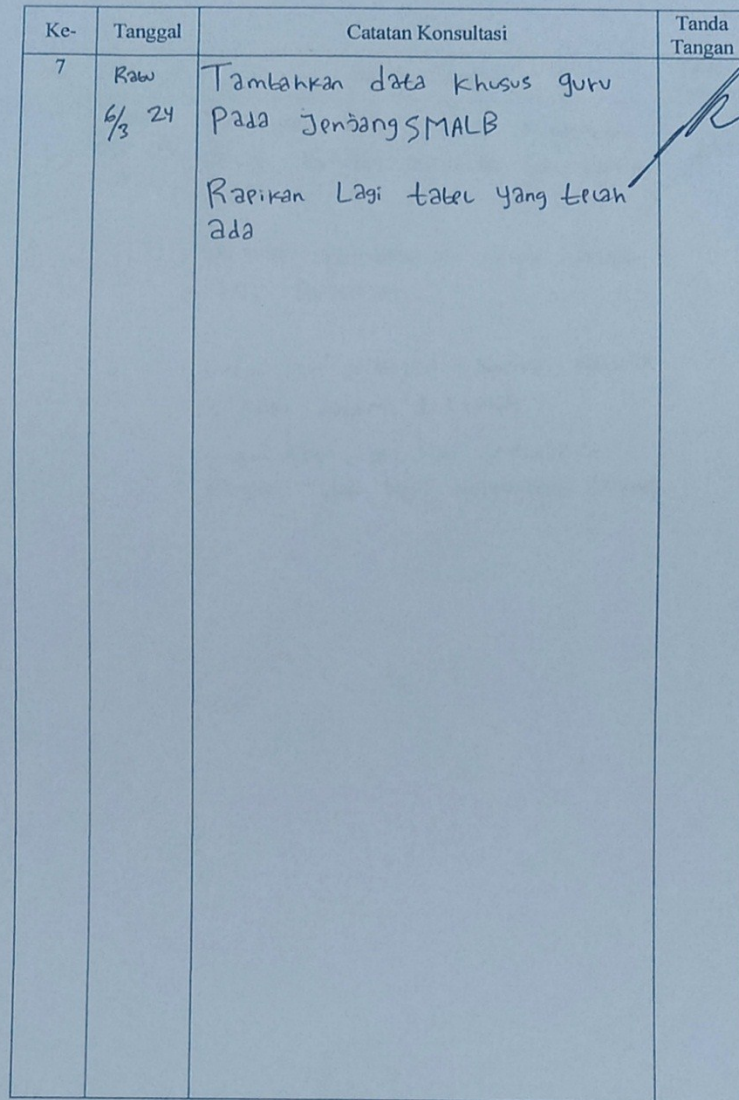 Ke- Tanggal Catatan Konsultasi Tanda Tangan
7 Rabu Tambahkan data khusus guru
6/3 24 Pada Jenjang SMALB
Rapikan Lagi tabel yang telah
ada